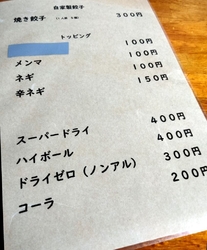 自家製餃子
焼き餃子 300円
トッピング
100円
メンマ 100円
ネギ 100円
辛ネギ 150円
スーパードライ 400円
ハイボール 400円
ドライゼロ（ノンアル） 300円
コーラ 200円